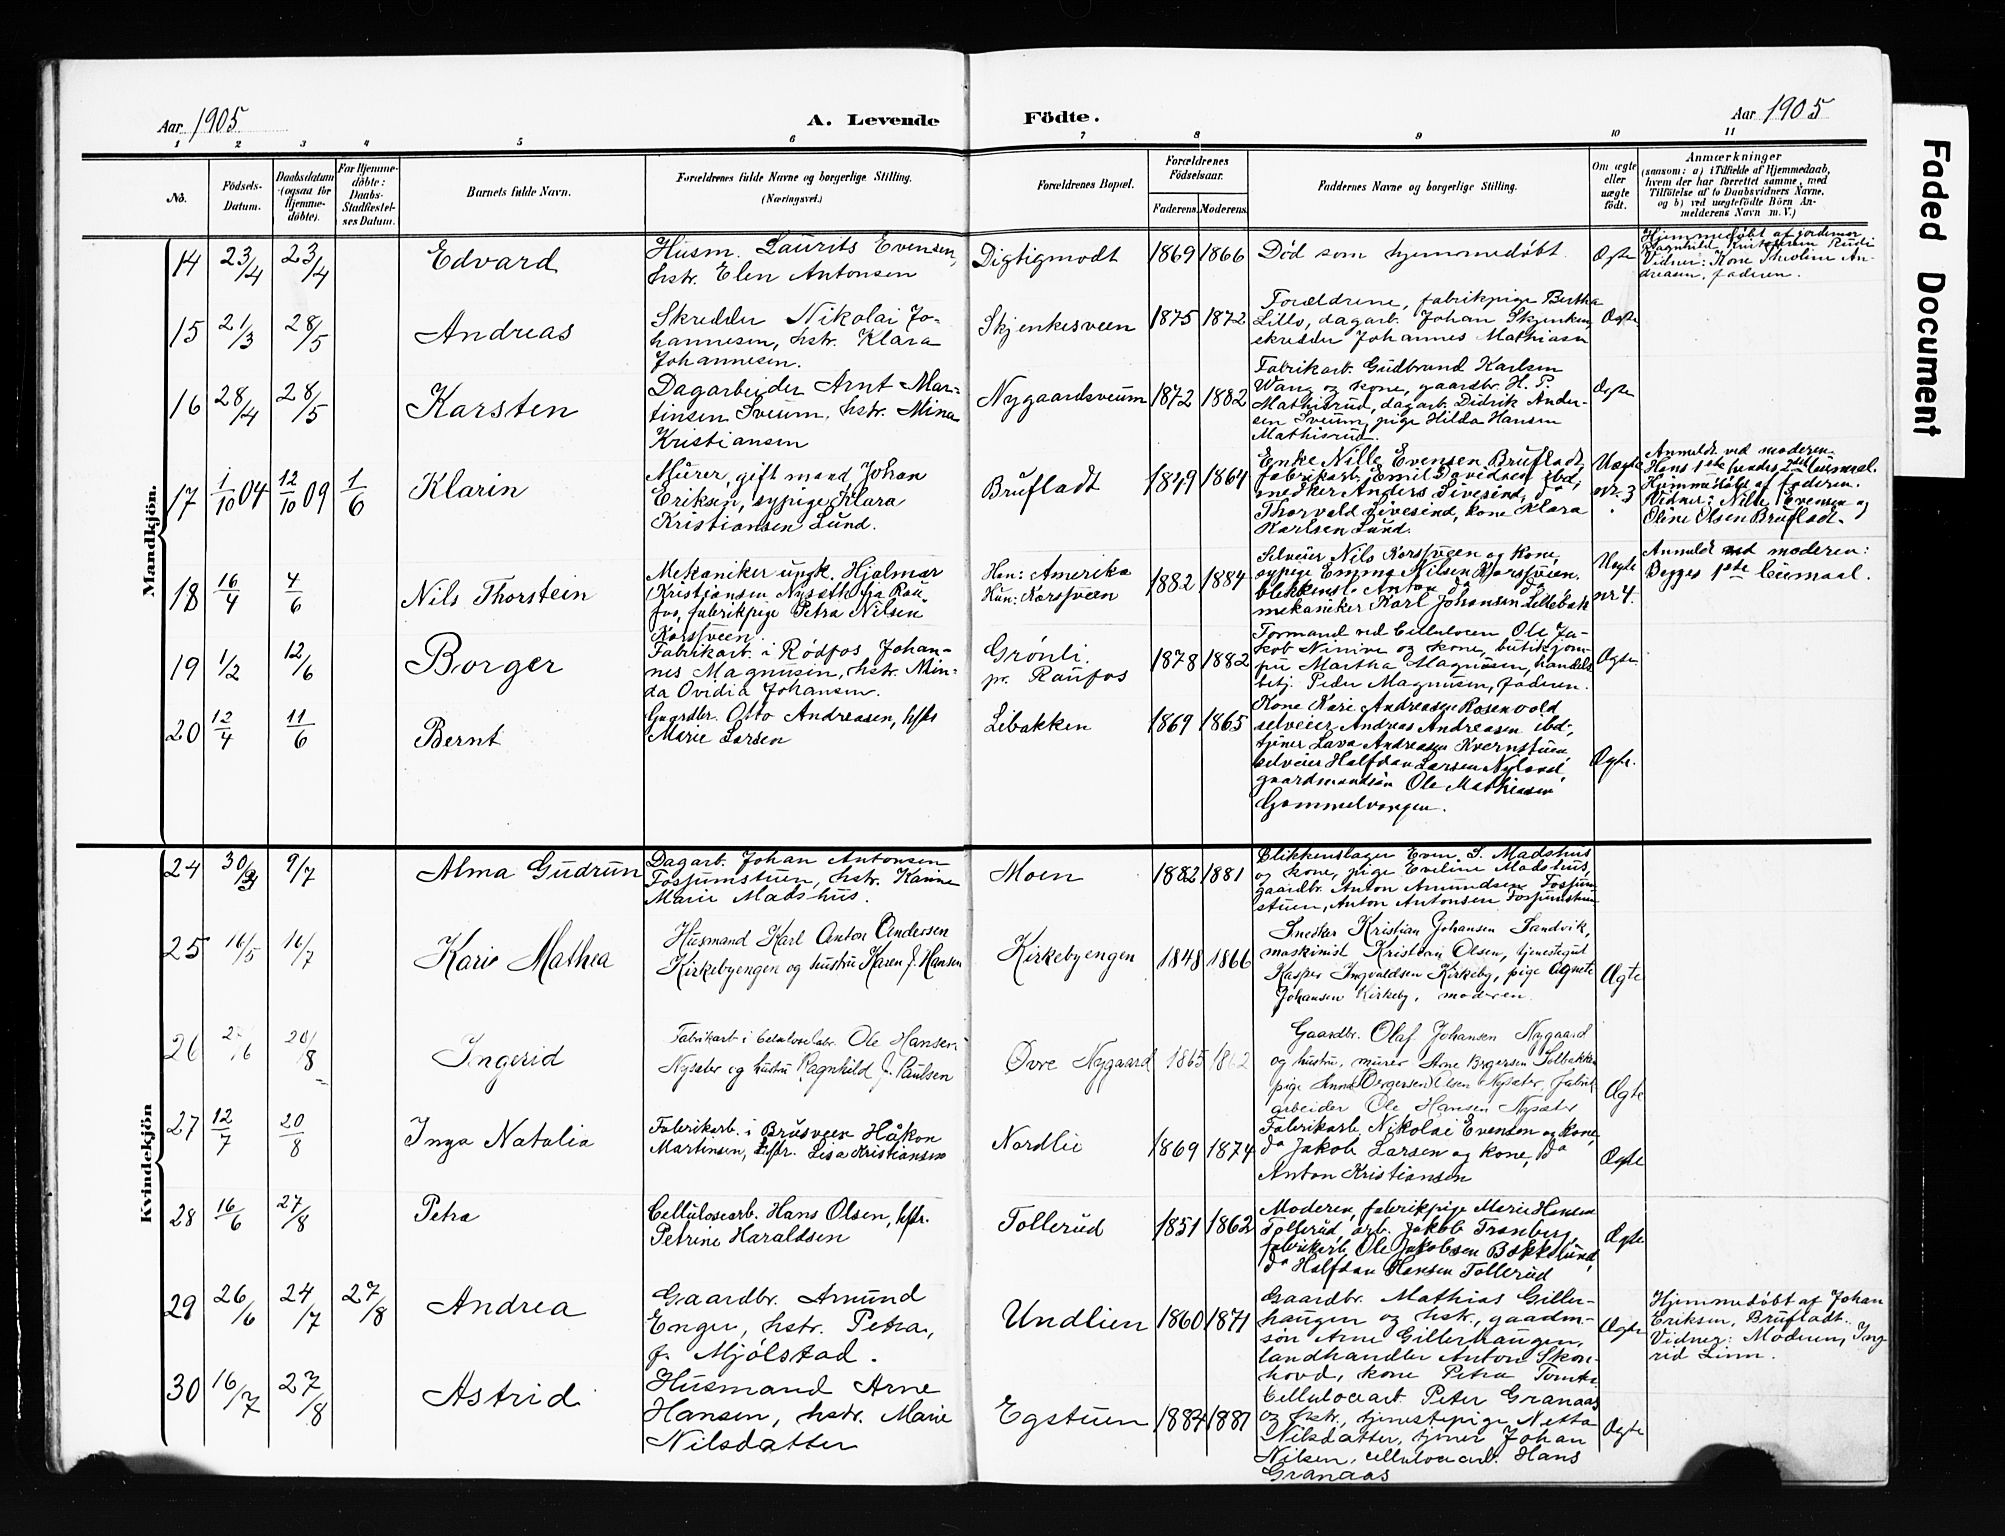 Aar 1905
A. Levende Födte.
Aar 1905
1 2 3 4 5 6 7 8 9 10 11
No.
Födsels-Datum.
Daabsdatum (ogsaa for Hjemme-døbte).
For Hjemme-döbte: Daabs-Stadfæstel-ses Datum.
Barnets fulde Navn.
Forældrenes fulde Navne og borgerlige Stilling.
(Næringsvei.)
Forældrenes Bopæl.
Forældrenes Födselsaar.
Faderens. Moderens.
Faddernes Navne og borgerlige Stilling.
Om ægte eller uægte født.
Anmærkninger
(saasom: a) i Tilfælde af Hjemmedaab,
hvem der har forrettet samme, med
Tilføielse af to Daabsvidners Navne,
og b) ved uægtefødte Börn An-
melderens Navn m. V.)
Mandkjön.
14 23/4 23/4 Edvard
Husm. Laurits Evensen,
hstr. Elen Antonsen
Digtigmodt 1869 1866
Død som hjemmedøbt
Ægte
Hjemmedøbt af jordemor
Vidner: Kone Thioline An-
dreasen, faderen.
15 21/3 28/5 Andreas
Skredder Nikolai Jo-
hannesen, hstr. Klara
Johannesen.
Skjenkesveen 1875 1872
Forældrene, fabrikpige Bertha
Lillo, dagarb. Johan Skjenken
skredder Johannes Mathiasn
Ægte
16 28/4 28/5 Karsten
Dagarbeider Arnt Mar-
tinsen Sveum, hstr. Mina
Kristiansen
Nygaardsveum 1872 1882
Fabrikarb. Gudbrand Karlsen
Wang og kone, gaardbr. H. P.
Mathisrud, dagarb. Didrik Ander-
sen Sveum, pige Hilda Hansen
Mathisrud.
Ægte
17 1/10 04 12/10 09 1/6 Klarin
Murer, gift mand, Johan
Eriksen, sypige Klara
Kristiansen Lund.
Brufladt 1849 1864
Enke Nille Evensen Brufladt,
fabrikarb. Emil Davidsen ibd,
snedker Anders Sivesind, da
Thorvald Sivesind, kone Klara
Karlsen Lund.
Uægte nr. 3
Anmeldt ved moderen.
Hans 1ste hendes 2det leiemaal.
Hjemmedøbt af faderen.
Vidner: Nille Evensen og
Oline Olsen Brufladt.
18 16/4 4/6 Nils Thorstein
Mekaniker ungk. Hjalmar
Kristiansen Nysæth fra Rau-
fos, fabrikpige Petra Nilsen
Korsveen.
Han: Amerika
Hun: Korsveen 1882 1884
Selveier Nils Korsveen og kone,
sypige Emma Nilsen Korsveen.
blikkensl. Anton da da
mekaniker Karl Johansen Lillebak
Uægte nr 4.
Anmeldt ved moderen:
Begges 1ste leiemaal.
19 1/2 12/6 Borger
Fabrikarb. i Rødfos Johan-
nes Magnusen, hstr. Min-
da Ovidia Johansen.
Grønli.
pr. Raufos 1878 1882
Formand ved Cellulosen Ole Ja-
kob Ninive og kone, butikjom-
fru Martha Magnusen, handels
betj. Peder Magnusen, faderen.
Ægte
20 12/4 11/6 Bernt
Gaardbr. Otto Andreasen, hstr
Marie Larsen
Libakken 1869 1865
Kone Kari Andreasen Rosenvold
selveier Andreas Andreasen ibd,
tjener Lava Andreasen Kvernstuen
selveier Halfdan Larsen Nyland,
gaardmandsøn Ole Mathiesen
Gammelvangen.
Ægte.
Kvindekjön
24 30/3 9/7 Alma Gudrun
Dagarb. Johan Antonsen
Fossumstuen, hstr. Karine
Marie Madshus.
Moen 1882 1881
Blikkenslager Even S. Madshus
og kone, pige Eveline Madshus,
gaardbr. Anton Amundsen Fossum
stuen, Anton Antonsen Fossumstuen
25 16/5 16/7 Karie Mathea
Husmand Karl Anton Andersen
Kirkebyengen og hustru Karen f. Hansen
Kirkebyengen 1848 1866
Snedker Kristian Johansen Sandvik,
maskinist Kristian Olsen, tjenestegut
Kasper Ingvaldsen Kirkeby, pige Agnete
Johansen Kirkeby, moderen.
Ægte
26 20/8 Ingerid
Fabrikarb i Celulosefabr. Ole Hansen
Nysæter og hustru Ragnhild f. Paulsen
Øvre Nygaard 1865 1862
Gaardbr. Olaf Johansen Nygaard
og hustru, murer Arne Bergersen Solbakken
pige Anna (Bergersen) Olsen Nysæter, fabrik
arbeider Ole Hansen Nysæter
Ægte
27 12/7 20/8 Inga Natalia
Fabrikarb. i Brusveen Håkon
Martinsen, hstr. Lisa Kristiansen
Nordlie 1869 1874
Fabrikarb. Nikolai Evensen og kone,
da Jakob Larsen og kone, da
Anton Kristiansen
Ægte
28 16/6 27/8 Petra
Cellulosearb. Hans Olsen, hstr.
Petrine Haraldsen
Tollerud 1851 1862
Moderen, fabrikpige Marie Hansen
Tollerud, arb. Jakob Tranberg,
fabrikarb. Ole Jakobsen Bakkelund,
da Halfdan Hansen Tollerud
Ægte
29 26/6 24/7 27/8 Andrea
Gaardbr. Amund
Enger, hstr. Petra,
f. Mjølstad.
Undlien 1860 1871
Gaardbr. Mathias Giller-
haugen og hstr., gaardm-
søn Arne Gillerhaugen,
landhandler Anton Skon-
hovd, kone Petra Tomte.
Ægte
Hjemmedøbt af Johan
Eriksen, Brufladt..
Vidner: Moderen, Ing
rid Linn.
30 16/7 27/8 Astrid
Husmand Arne
Hansen, hstr. Marie
Nilsdatter
Egstuen 1884 1881
Cellulosearb. Peter Granaas
og hstr., tjenestepige Netta
Nilsdatter, tjener Johan
Nilsen, cellulosearb. Hans
Granaas
Ægte
Faded Document